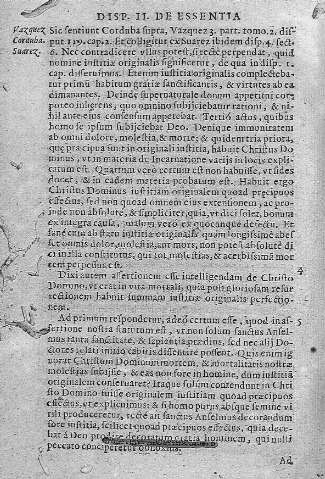 DISP. II. DE ESSENTIA
Vazquez
Corduba.
Suarez.
Sic sentiunt Corduba supra, Vazquez 3. part. tomo. 2. disput 119. cap. 2. Et colligitur ex Suarez ibidem disp. 4. sect.
6. Nec contradicere ullus potest, si recte perpendat, quid
nomine iustitiæ originalis significetur, de qua in disp. 1.
cap. disseruimus. Etenim iustitia originalis complectebatur
primo habitum gratiæ sanctificantis, & virtutes ab ea
dimanantes. Deinde supernaturale donum
& nihil ante eius consensum appetebat. Tertiò actus, quibus
homo se ipsum subijciebat Deo. Denique immunitatem
ab omni dolore, molestia, & morte; & quidem tria priora,
quæ præcipua sunt in originali iustitia, habuit Christus Dominus,
ut in materia de Incarnatione varijs in locis explicatum
est. Quartum verò certum est non habuisse, ut fides
docet, & in eadem materia probatum est. Habuit ergo
Christus Dominus iustitiam originalem quoad præcipuos
effectus, sed non quoad omnem eius extensionem, ac proinde
non absolutè, & simpliciter, quia, ut dici solet, bonum
ex integra causa, malum verò ex quocunque defectu. Et
sanè cùm ab statu iustitiæ originalis quàm longissimè abesset
omnis dolor, molestia, aut mors, non potest absolutè dici
in illa constitutus, qui tot molestias, & acerbissimam mortem
perpessus est.
4
Dixi autem assertionem esse intelligendam de Christo
Domino, ut erat in vita mortali, quia post gloriosam resurrectionem
habuit summam iustitiæ originalis perfectionem.
5
Ad primum respondetur, adeò certum esse, quod in assertione
nostra statutum est, ut non solum sanctus Anselmus
rara sanctitate, & sapientia præditus, sed nec alij Doctores
Quis enim ignorat
Christum Dominum mortem, & mortalitatis nostræ
molestias subijsse, & eas non fore in homine, dum iustitiam
originalem conseruaret? Itaque solum contendunt in Christo
Domino fuisse originalem iustitiam quoad præcipuos
effectus, ut explicuimus; & si homo purus absque semine viri
produceretur, rectè ait sanctus Anselmus decorandum
fore iustitia, scilicet quoad præcipuos effectus, quia decebat
à Deo prodire decoratum gratia hominem, qui nulli
peccato conciperetur obnoxius.
Ad